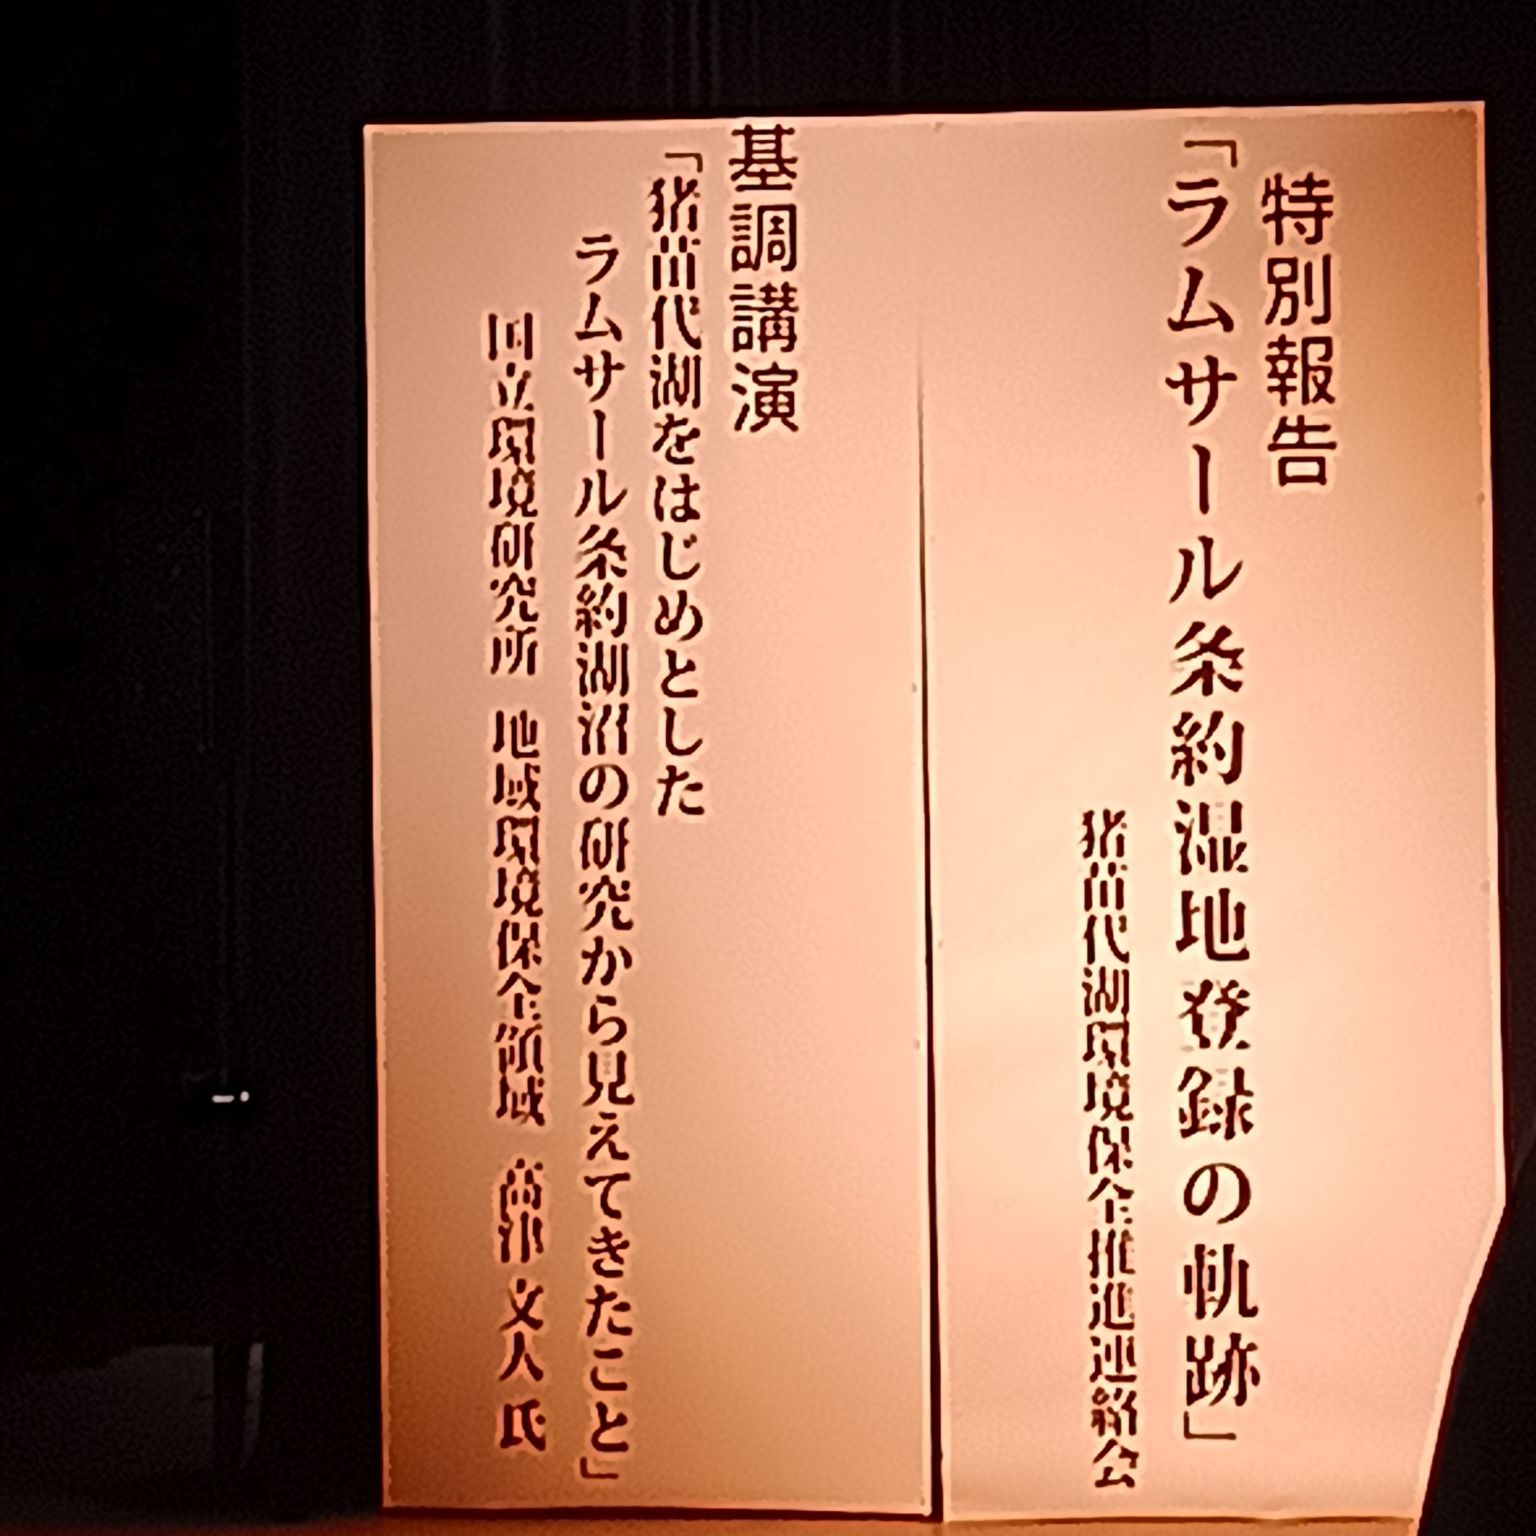 特別報告
「ラムサール条約湿地登録の軌跡」
猪苗代湖環境保全推進連絡会
基調講演
「猪苗代湖をはじめとした
ラムサール条約湖沼の研究から見えてきたこと」
国立環境研究所 地域環境保全領域 高津 文人 氏